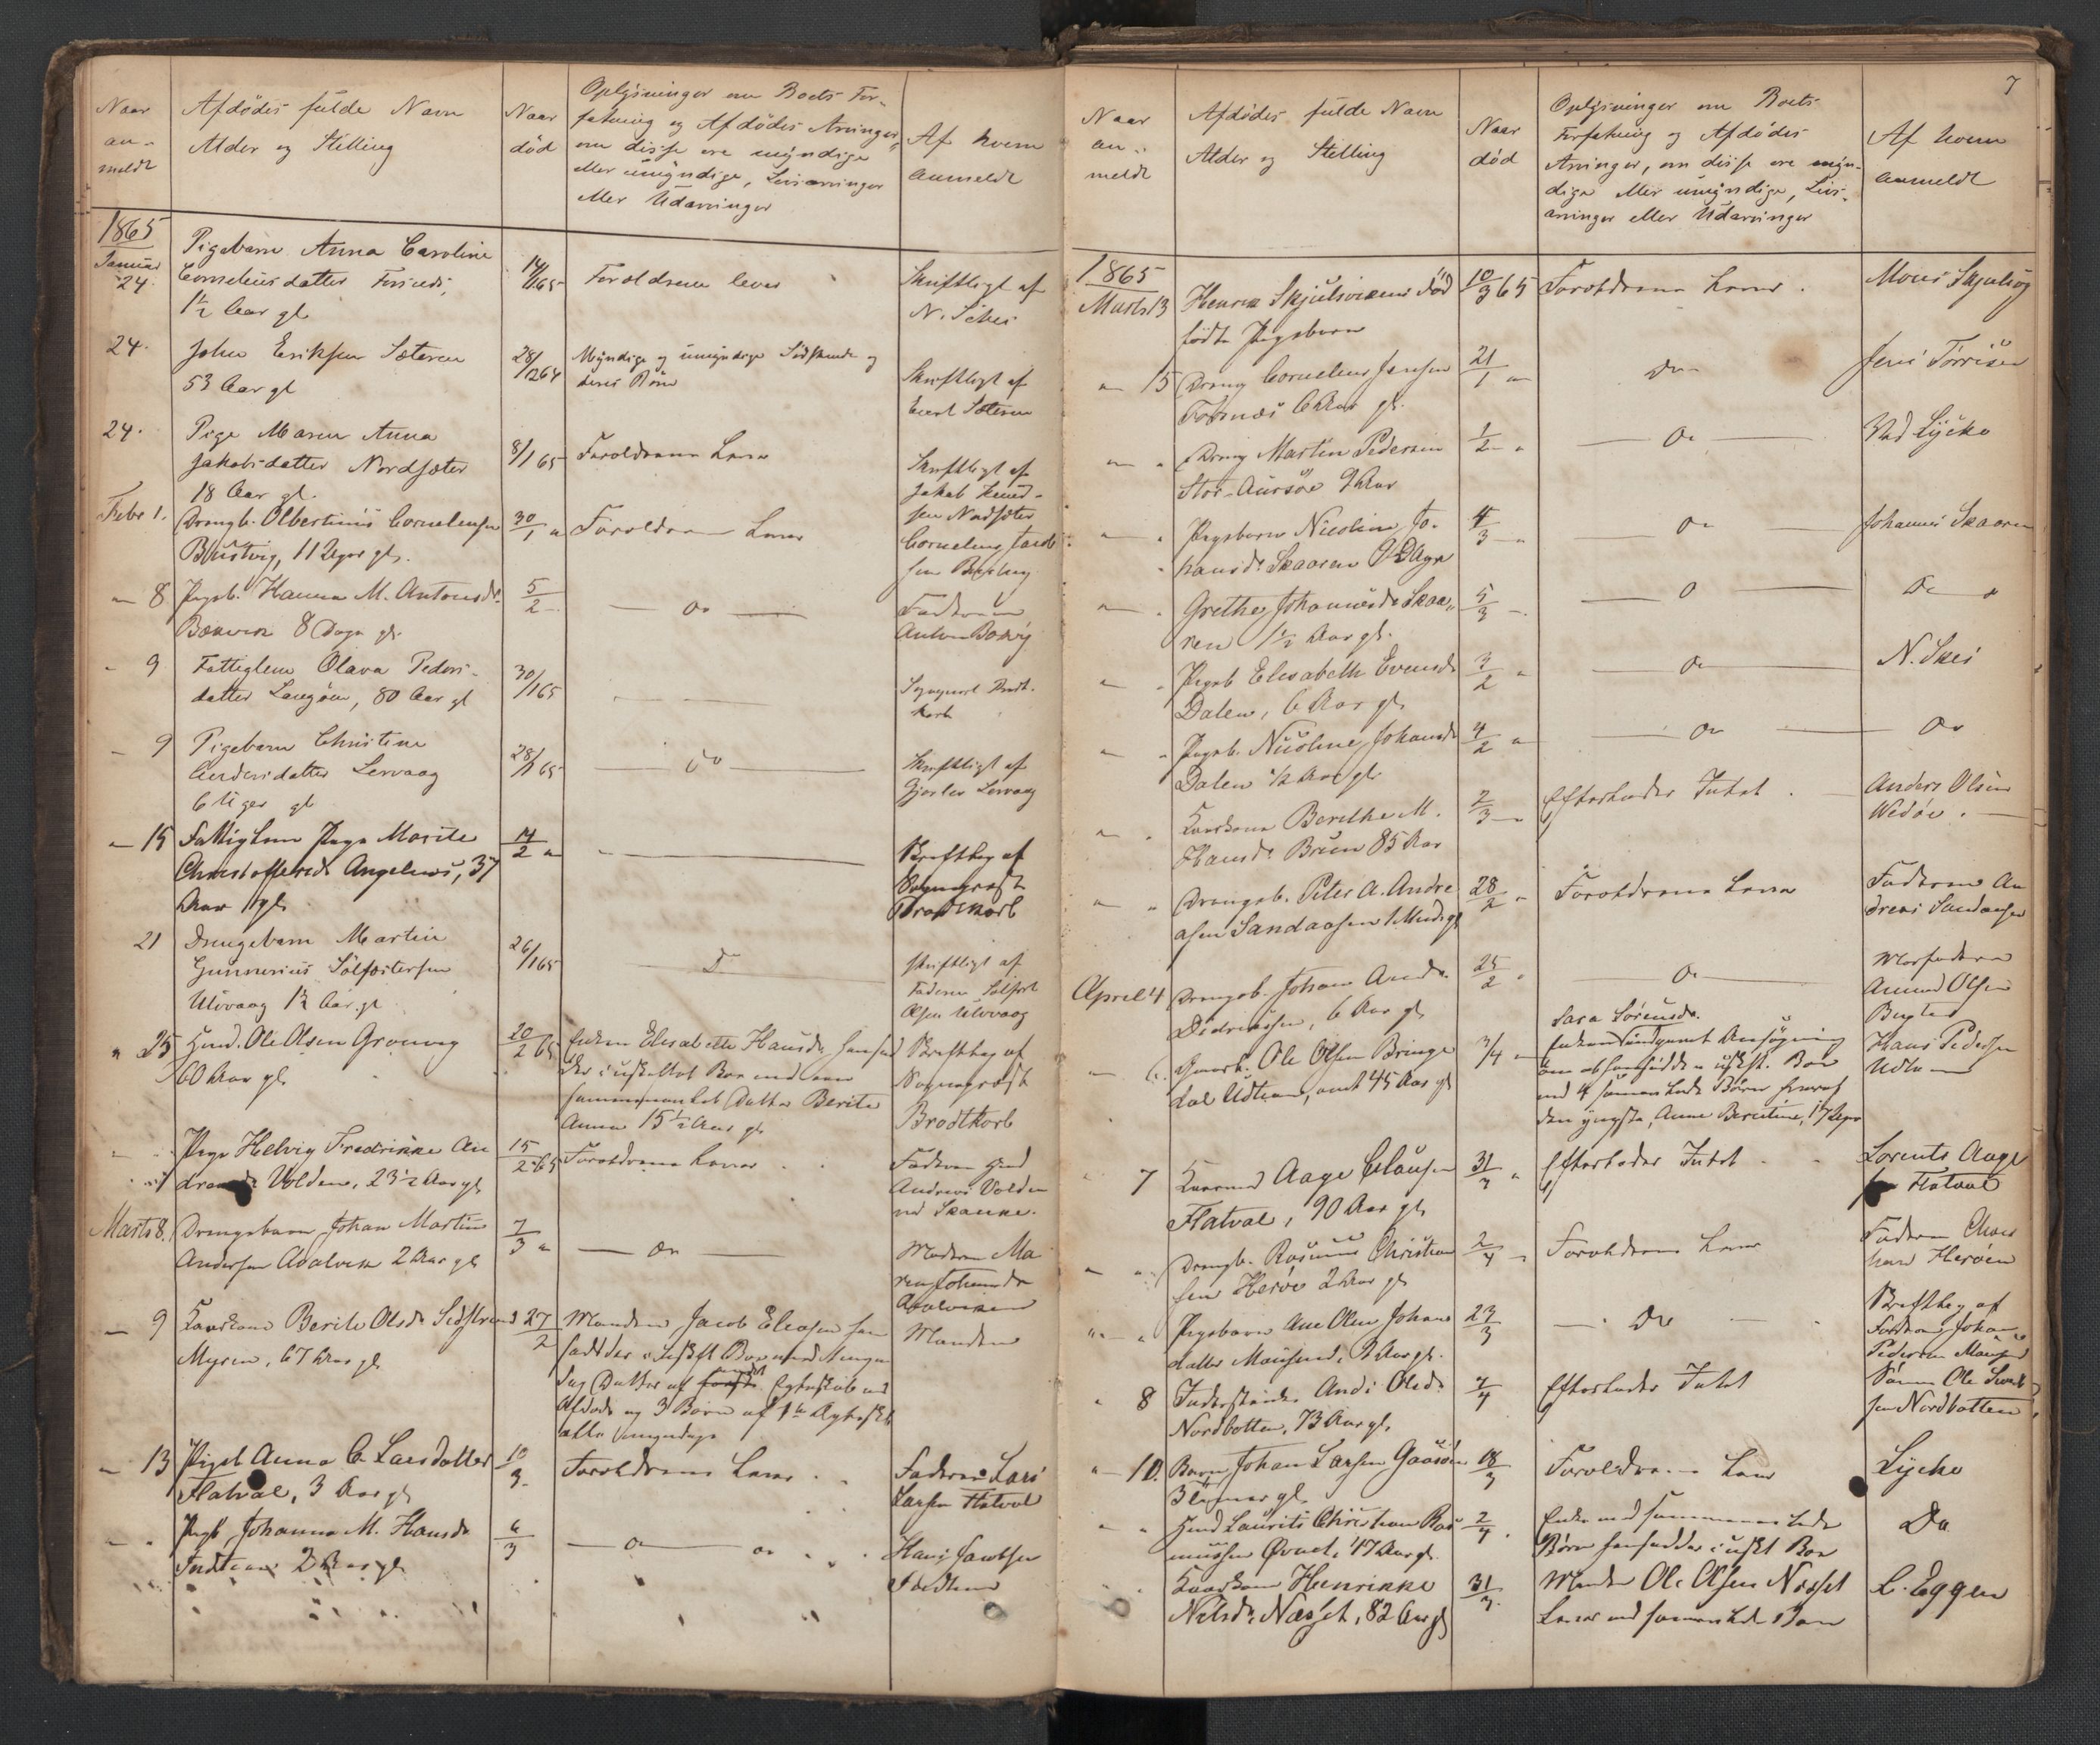 Naar
an-
meldt
Afdødes fulde Navn
Alder og Stilling
Naar
død
Oplysninger om Boets For-
fatning og Afdødes Arvinger,
om disse ere myndige
eller umyndige, Livsarvinger
eller Udarvinger
Af hvem
anmeldt
1865
Januar
24.
Pigebarn Anna Caroline
Corneliusdatter
1½ Aar gl
65
Forældrene lever
Skriftligt af
N. Schei
24.
John Eriksen Sæteren
53 Aar gl
28/12 64
Myndige og umyndige Sødskende og
deres Børn
Skriftligt af
Sæteren
24.
Pige Maren Anna
Jakobsdatter Nordsæter
18 Aar gl.
8/1 65
Forældrene Lever
Skriftligt af
Jakob
sen Nordsæter
Febr 1.
Drengb. Olbertinus Corneliussen
11 Uger gl.
30/1 "
Forældrene Lever
Cornelius Jacob
sen
" 8
Pigeb. Hanna M. Antonsdr.
8 Dage gl.
5/2
Do
Faderen
Anton
" 9
Fattiglem Olava Peders-
datter Langøen, 80 Aar gl
30/1 65
Sogneprest Brodt-
korb
" 9
Pigebarn Christine
Andersdatter Lervaag
6 Uger gl
28/1 65
Do
Skriftligt af
Lervaag
" 15
Fattiglem Pige Marite
Christoffersdr Angelnes, 37
Aar gl.
14/2 "
Skriftlig af
Sogneprest
Brodtkorb
21
Drengebarn Martin
Gunnerius Sølfæstersen
Ulvvaag 1½ Aar gl
26/1 65
D
Skriftligt af
Faderen
Olsen Ulvvaag
" 25
Huusd. Ole Olsen
60 Aar gl.
20/2 65
Enken Elisabeth Hansdr. hensid
der i uskiftet Boe med een
sammenavlet Datter Berite
Anna 15½ Aar gl
Skriftlig af
Sogneprest
Brodtkorb
Pige Helvig Fredrikke An
Volden, 23½ Aar gl
15/2 65
Forældrene Lever
Faderen
Andreas Volden
ved
Marts 8.
Drengebarn Johan Martin
Andersen 2 Aar gl
7/3 "
Do
Moderen Ma
ren
" 9
Kaarkone Berite Olsdr
Myren, 67 Aar gl
27/2
Manden Jacob Eliasen hen
sidder i Uskift Boe med
Datter af Egteskab med
Afdøde og 3 Børn af 1ste Egteskab
alle myndige
Manden
" 13
Pigeb Anna C. Larsdatter
Flatval, 3 Aar gl
10/3
Forældrene Lever
Faderen Lars
Larsen Flatval
Pigb Johanna M. Hansdr
2 Aar gl
6/3
Do
Hans Jacobsen
7
Naar
an-
meldt
Afdødes fulde Navn
Alder og Stilling
Naar
død
Oplysninger om Boets
Forfatning og Afdødes
Arvinger, om disse ere myn-
dige eller umyndige, Livs-
arvinger eller Udarvinger
Af hvem
anmeldt
1865
Marts 13
Henrik Skjulsvikens død
fødte Pigebarn
10/3 65
Forældrene Lever
Mons
" 15
Dreng Cornelius Jensen
6 Aar gl.
21/1 "
Do
Jens Tørrisen
Dreng Martin Pedersen
Stor-Aursøe 9 Aar
1/2 "
Do
Ved Lycke
Pigebarn Nicoline Jo-
hansdr Skaaren 9 Dage
4/3 "
Do
Johannes Skaaren
Grethe Johannesdr Skaa-
ren 1½ Aar gl.
5/3
Do
Do
Pigeb Elisabeth Evensdr
Dalen, 6 Aar gl
3/2 "
Do
N. Skei
Pigeb. Nicoline Johansdr
Dalen ½ Aar gl
4/2 "
Do
Do
Kaarkone Berithe M.
Hansdr Bruun 85 Aar
2/3
Efterlader Intet
Anders Olsen
Wedøe.
Drengeb. Peter A. Andre
asen Sandaasen 1 Mnd gl
28/2 "
Forældrene Lever
Faderen An
dreas Sandaasen
April 4
Drengeb. Johan
Didriksen, 6 Aar gl
25/2 "
Do
Morfaderen
Amund Olsen
Gaardb. Ole Olsen Bringe
dal Udtian, omt 45 Aar gl
3/4 "
Sara Sørensdr.
Enken indgivet Ansøgning
om at hensidde i uskift. Boe
med 4 sammenavlede Børn hvoraf
den yngste, Anne Beritine, 17 Uger
Hans Pedersen
" 7
Kaarmd Aage Clausen
Flatval, 90 Aar gl.
31/3 "
Efterlader Intet
Lorents Aage
sen Flatval
Drengb. Rasmus Christian
sen Herøe 2 Aar gl
2/4
Forældrene Lever
Faderen Chris
Herøen
Pigebarn Ane Oline Johans
datter Mausund, 2 Aar gl.
23/3
Do
Skriftlig af
Faderen Johan
Pedersen Mausund
" 8
Inderstenke Andi Olsdr
Nordbotten, 73 Aar gl.
7/4
Efterlader Intet
Sønnen Ole
sen Nordbotten
" 10.
Barn Johan Larsen Gaasøen
3 Uger gl.
18/3
Forældrene Lever
Lycke
Huusd Laurits Christian Ras
mussen Øvnet, 47 Aar gl.
2/4
Enke med sammenavlede
Børn hensidder i uskt Boe
Do
Kaarkone Henrikke
Nilsdr Næsset, 82 Aar gl
31/3
Manden Ole Olsen Næsset
Lever med sammenavlede Børn
L. Eggen